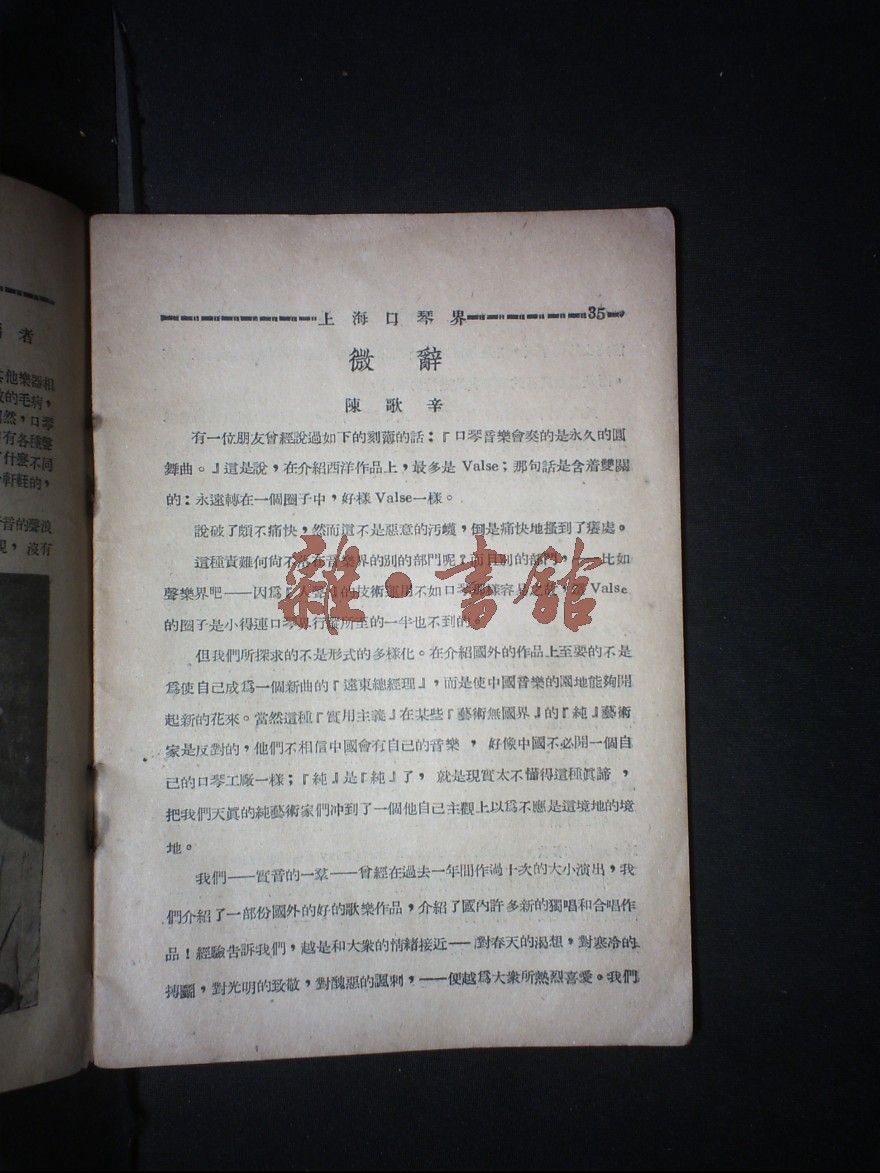 者
其他樂器相
的毛病，
然，口琴
有各種聲
什麼不同
軒輊的，
音的聲浪
現，沒有
上海口琴界 35
微辭
陳歌辛
有一位朋友曾經說過如下的刻薄的話：『口琴音樂會奏的是永久的圓
舞曲。』這是說，在介紹西洋作品上，最多是 Valse；那句話是含着雙關
的：永遠轉在一個圈子中，好樣 Valse一樣。
說破了頗不痛快，然而這不是惡意的汚衊，倒是痛快地搔到了癢處。
這種責難何尙不落在音樂界的別的部門呢？而且別的部門，——比如
聲樂界吧——因爲『人聲』的技術運用不如口琴那樣容易之故，Valse
的圈子是小得連口琴界行蹤所至的一半也不到的。
但我們所探求的不是形式的多樣化。在介紹國外的作品上至要的不是
爲使自己成爲一個新曲的『遠東總經理』，而是使中國音樂的園地能夠開
起新的花來。當然這種『實用主義』在某些『藝術無國界』的『純』藝術
家是反對的，他們不相信中國會有自己的音樂，好像中國不必開一個自
己的口琴工廠一樣；『純』是『純』了，就是現實太不懂得這種眞諦，
把我們天眞的純藝術家們冲到了一個他自己主觀上以爲不應是這境地的境
地。
我們——實音的一羣——曾經在過去一年間作過十次的大小演出，我
們介紹了一部份國外的好的歌樂作品，介紹了國內許多新的獨唱和合唱作
品！經驗告訴我們，越是和大衆的情緒接近——對春天的渴想，對寒冷的
搏鬬，對光明的致敬，對醜惡的諷刺，——便越爲大衆所熱烈喜愛。我們
雜·書館